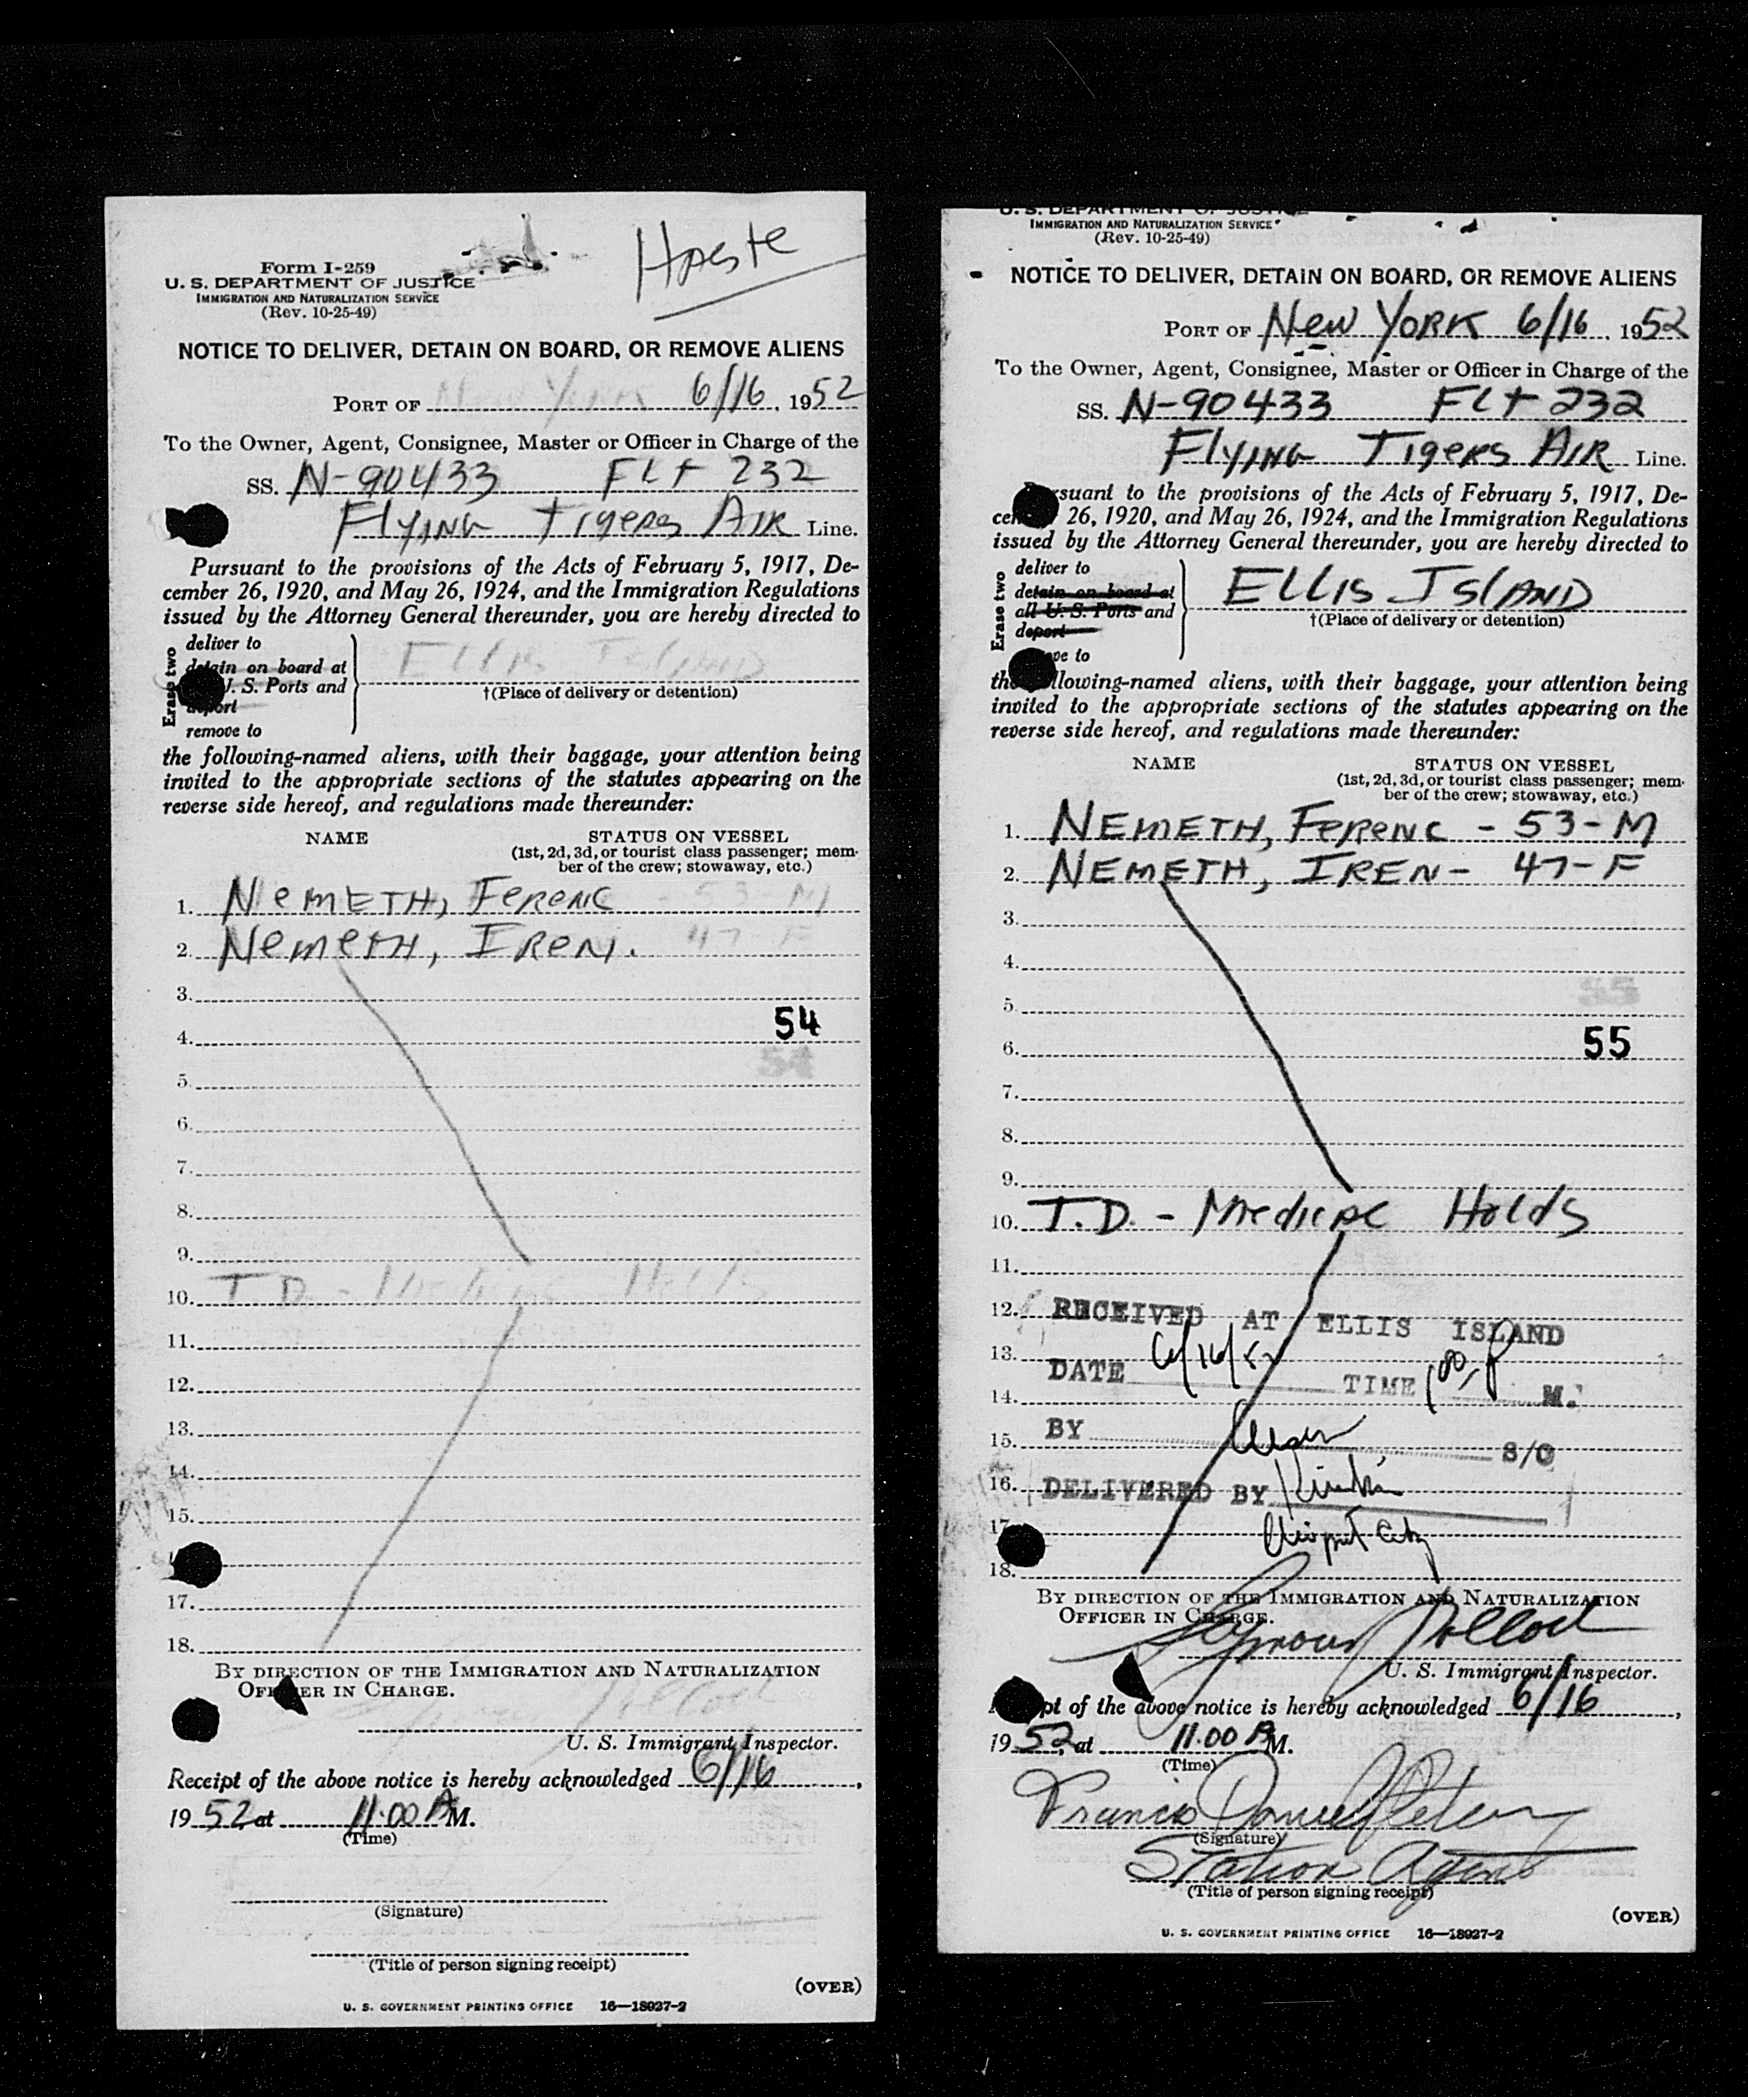 Haste
Form I-259
U. S. DEPARTMENT OF JUSTICE
IMMIGRATION AND NATURALIZATION SERVICE
(Rev. 10-25-49)
NOTICE TO DELIVER, DETAIN ON BOARD, OR REMOVE ALIENS
PORT OF New York 6/16, 1952
To the Owner, Agent, Consignee, Master or Officer in Charge of the
SS. N-90433 FLt 232
Flying Tigers Air Line.
Pursuant to the provisions of the Acts of February 5, 1917, De-
cember 26, 1920, and May 26, 1924, and the Immigration Regulations
issued by the Attorney General thereunder, you are hereby directed to
Erase two
deliver to
detain on board at
U. S. Ports and
deport
remove to
Ellis Island
†(Place of delivery or detention)
the following-named aliens, with their baggage, your attention being
invited to the appropriate sections of the statutes appearing on the
reverse side hereof, and regulations made thereunder:
NAME STATUS ON VESSEL
(1st, 2d, 3d, or tourist class passenger; mem-
ber of the crew; stowaway, etc.)
1. Nemeth, Ferenc - 53 M
2. Nemeth, Iren. 47-F
3.
54
4.
54
5.
6.
7.
8.
9.
10. T.D. - Medical Holds
11.
12.
13.
14.
15.
17.
18.
BY DIRECTION OF THE IMMIGRATION AND NATURALIZATION
OFFICER IN CHARGE.
U. S. Immigrant Inspector.
Receipt of the above notice is hereby acknowledged 6/16,
1952, at 11:00 A M.
(Time)
(Signature)
(Title of person signing receipt)
(OVER)
U. S. GOVERNMENT PRINTING OFFICE 16—18927-2
U. S. DEPARTMENT OF JUSTICE
IMMIGRATION AND NATURALIZATION SERVICE
(Rev. 10-25-49)
NOTICE TO DELIVER, DETAIN ON BOARD, OR REMOVE ALIENS
PORT OF New York 6/16, 1952
To the Owner, Agent, Consignee, Master or Officer in Charge of the
SS. N-90433 FLt 232
Flying Tigers Air Line.
Pursuant to the provisions of the Acts of February 5, 1917, De-
cember 26, 1920, and May 26, 1924, and the Immigration Regulations
issued by the Attorney General thereunder, you are hereby directed to
Erase two
deliver to
detain on board at
all U. S. Ports and
deport
remove to
Ellis Island
†(Place of delivery or detention)
the following-named aliens, with their baggage, your attention being
invited to the appropriate sections of the statutes appearing on the
reverse side hereof, and regulations made thereunder:
NAME STATUS ON VESSEL
(1st, 2d, 3d, or tourist class passenger; mem-
ber of the crew; stowaway, etc.)
1. NEMETH, Ferenc - 53-M
2. NEMETH, IREN - 47-F
3.
4.
55
5.
55
6.
7.
8.
9.
10. T.D. - Medical Holds
11.
12. RECEIVED AT ELLIS ISLAND
13. DATE 6/16/52 TIME 1:00 P M.
14.
15. BY S/O
16. DELIVERED BY
17. Airport City
18.
BY DIRECTION OF THE IMMIGRATION AND NATURALIZATION
OFFICER IN CHARGE.
Seymour Pollock
U. S. Immigrant Inspector.
Receipt of the above notice is hereby acknowledged 6/16,
1952, at 11:00 A M.
(Time)
Francis
(Signature)
Station Agent
(Title of person signing receipt)
(OVER)
U. S. GOVERNMENT PRINTING OFFICE 16—18927-2